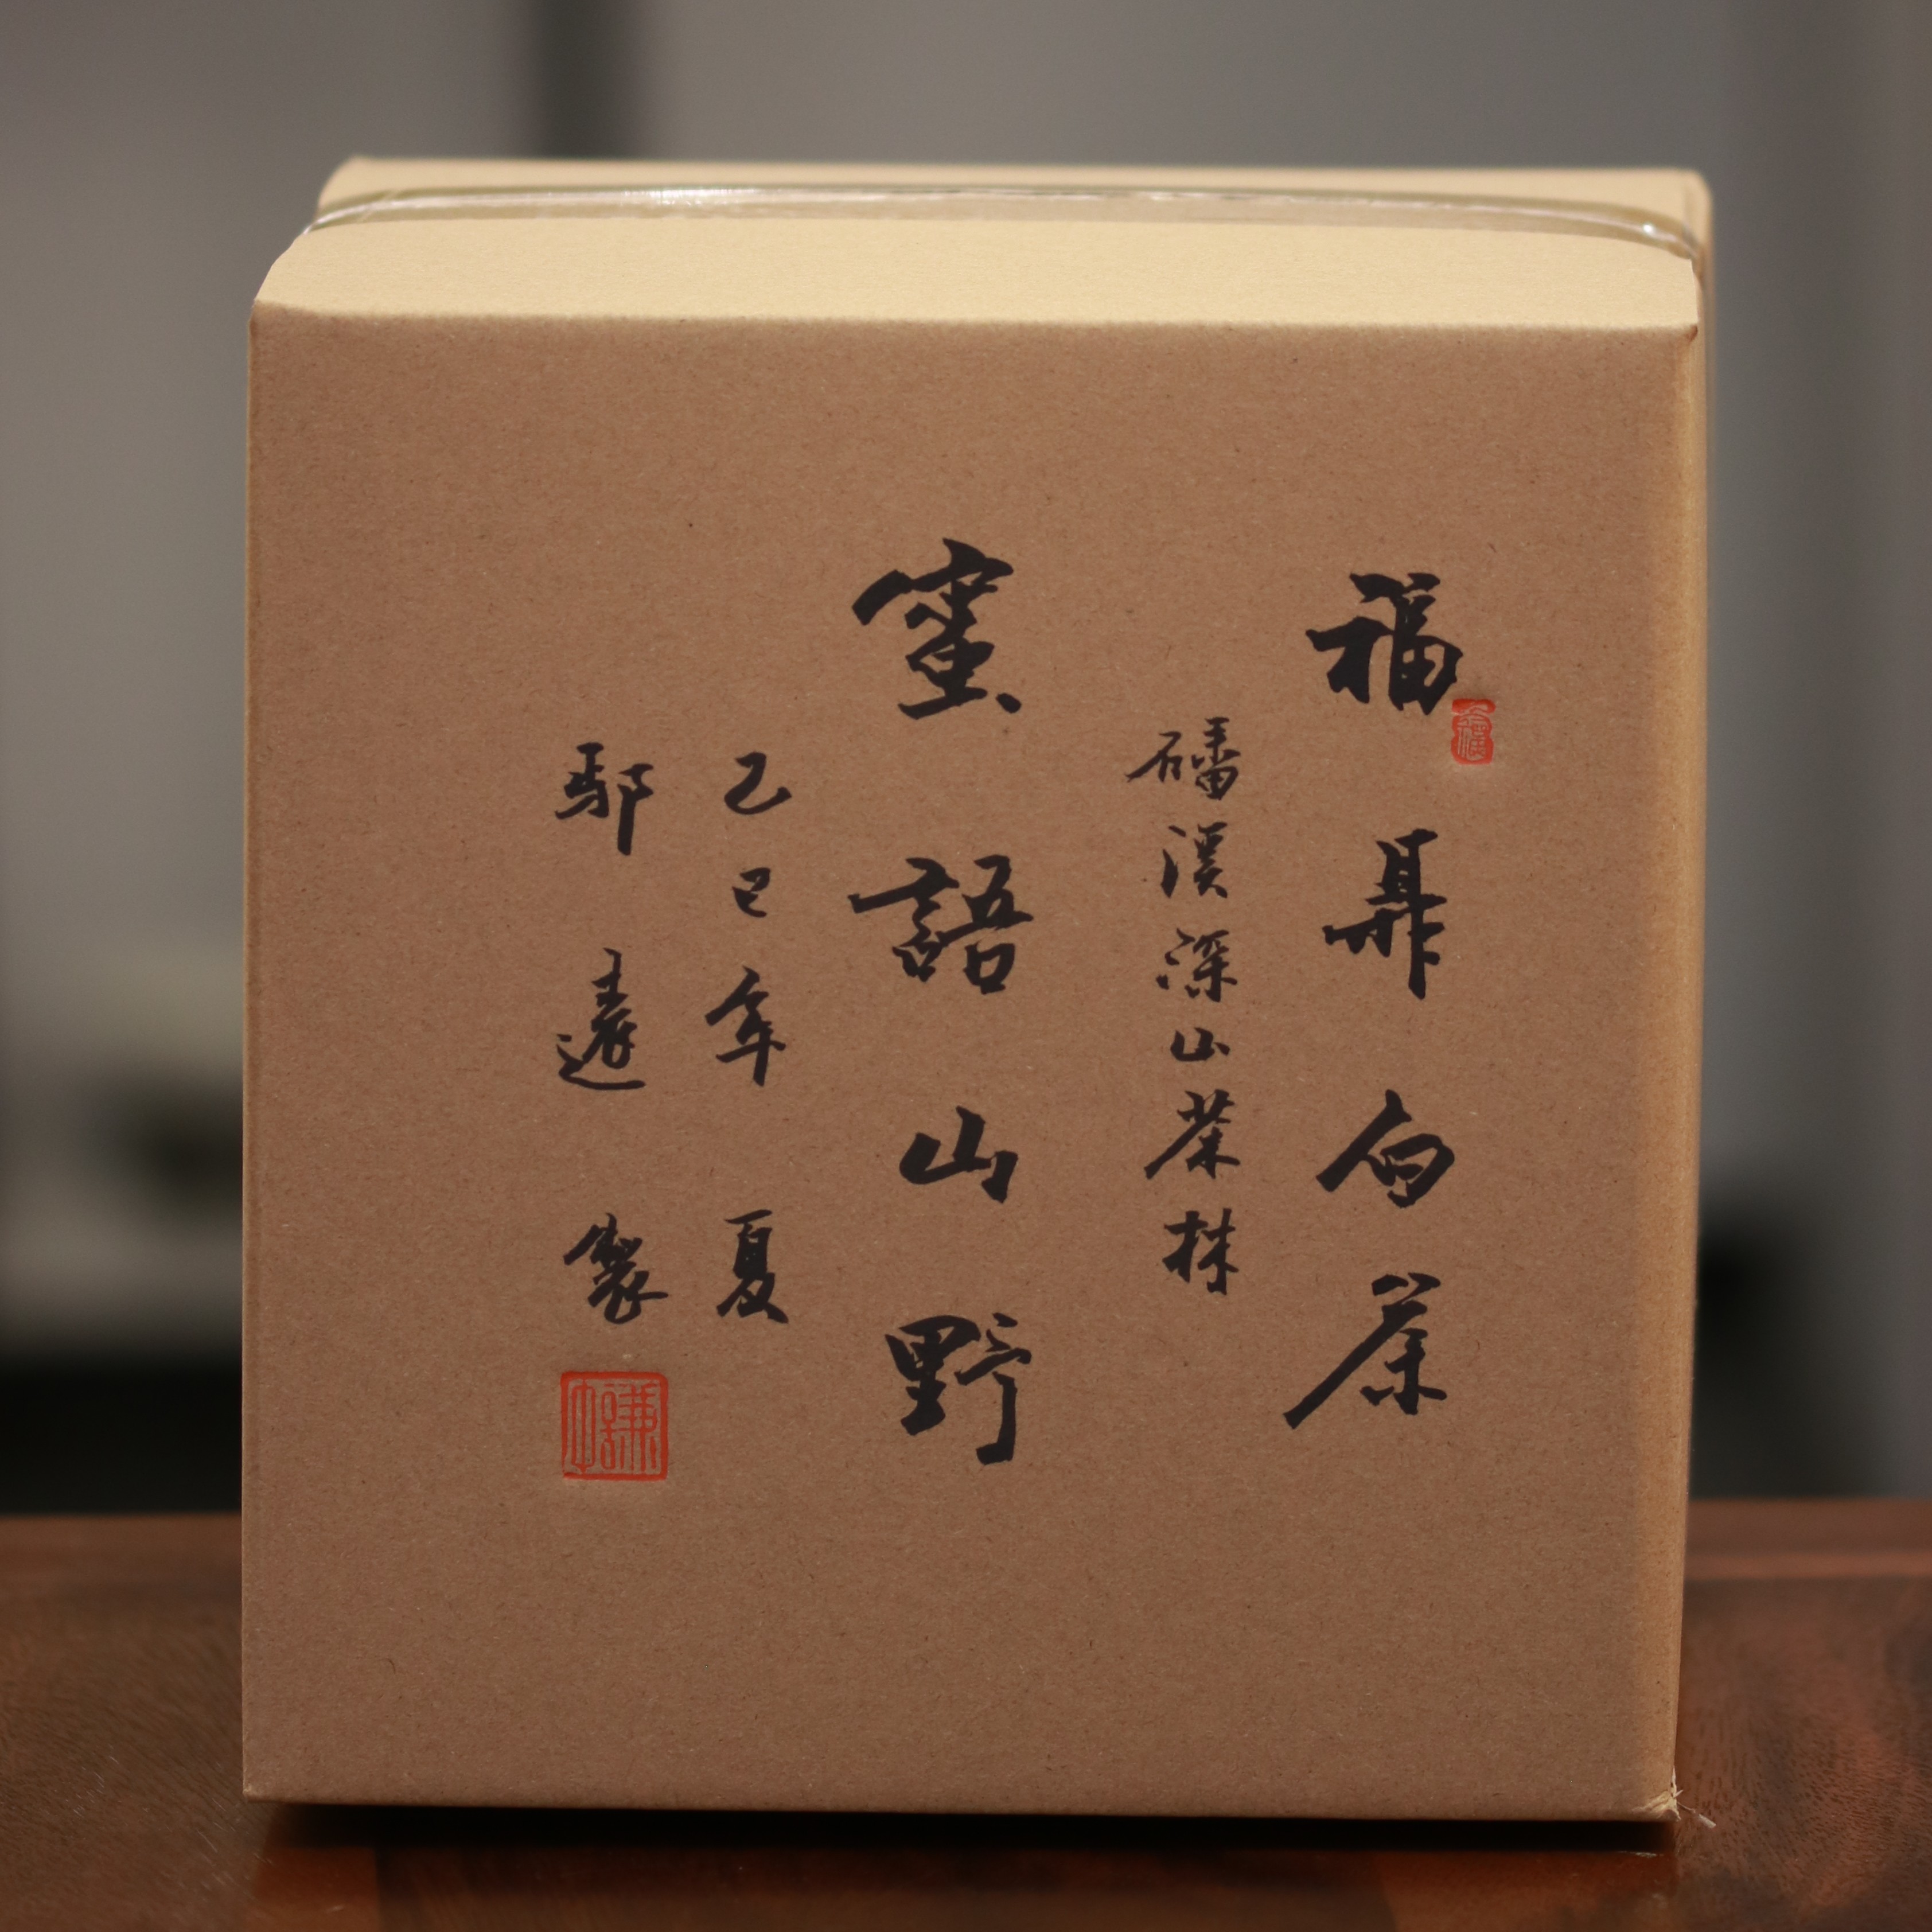 福鼎白茶
磻溪深山茶株
蜜語山野
乙巳年 夏
鄢遠 製